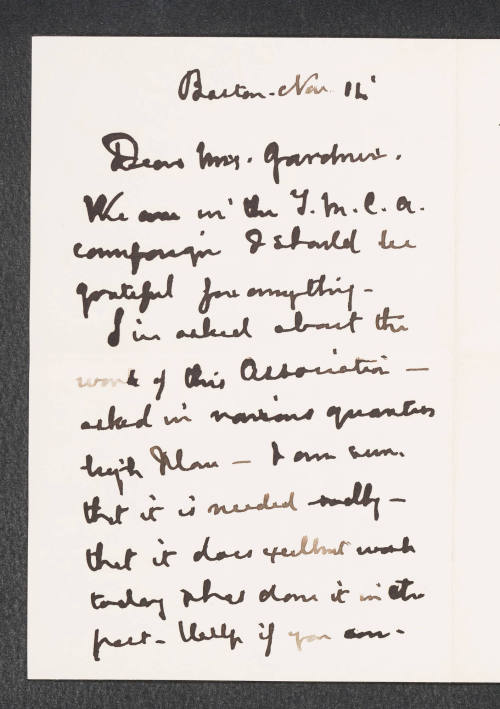 Boston - Nov 14
Dear Mrs. Gardner.
We are in the Y.M.C.A.
campaign & should be
grateful for anything -
I've asked about the
work of this Association -
asked in various quarters
high & low - & am sure
that it is needed sadly -
that it does excellent work
today & has done it in the
past - Help if you can -